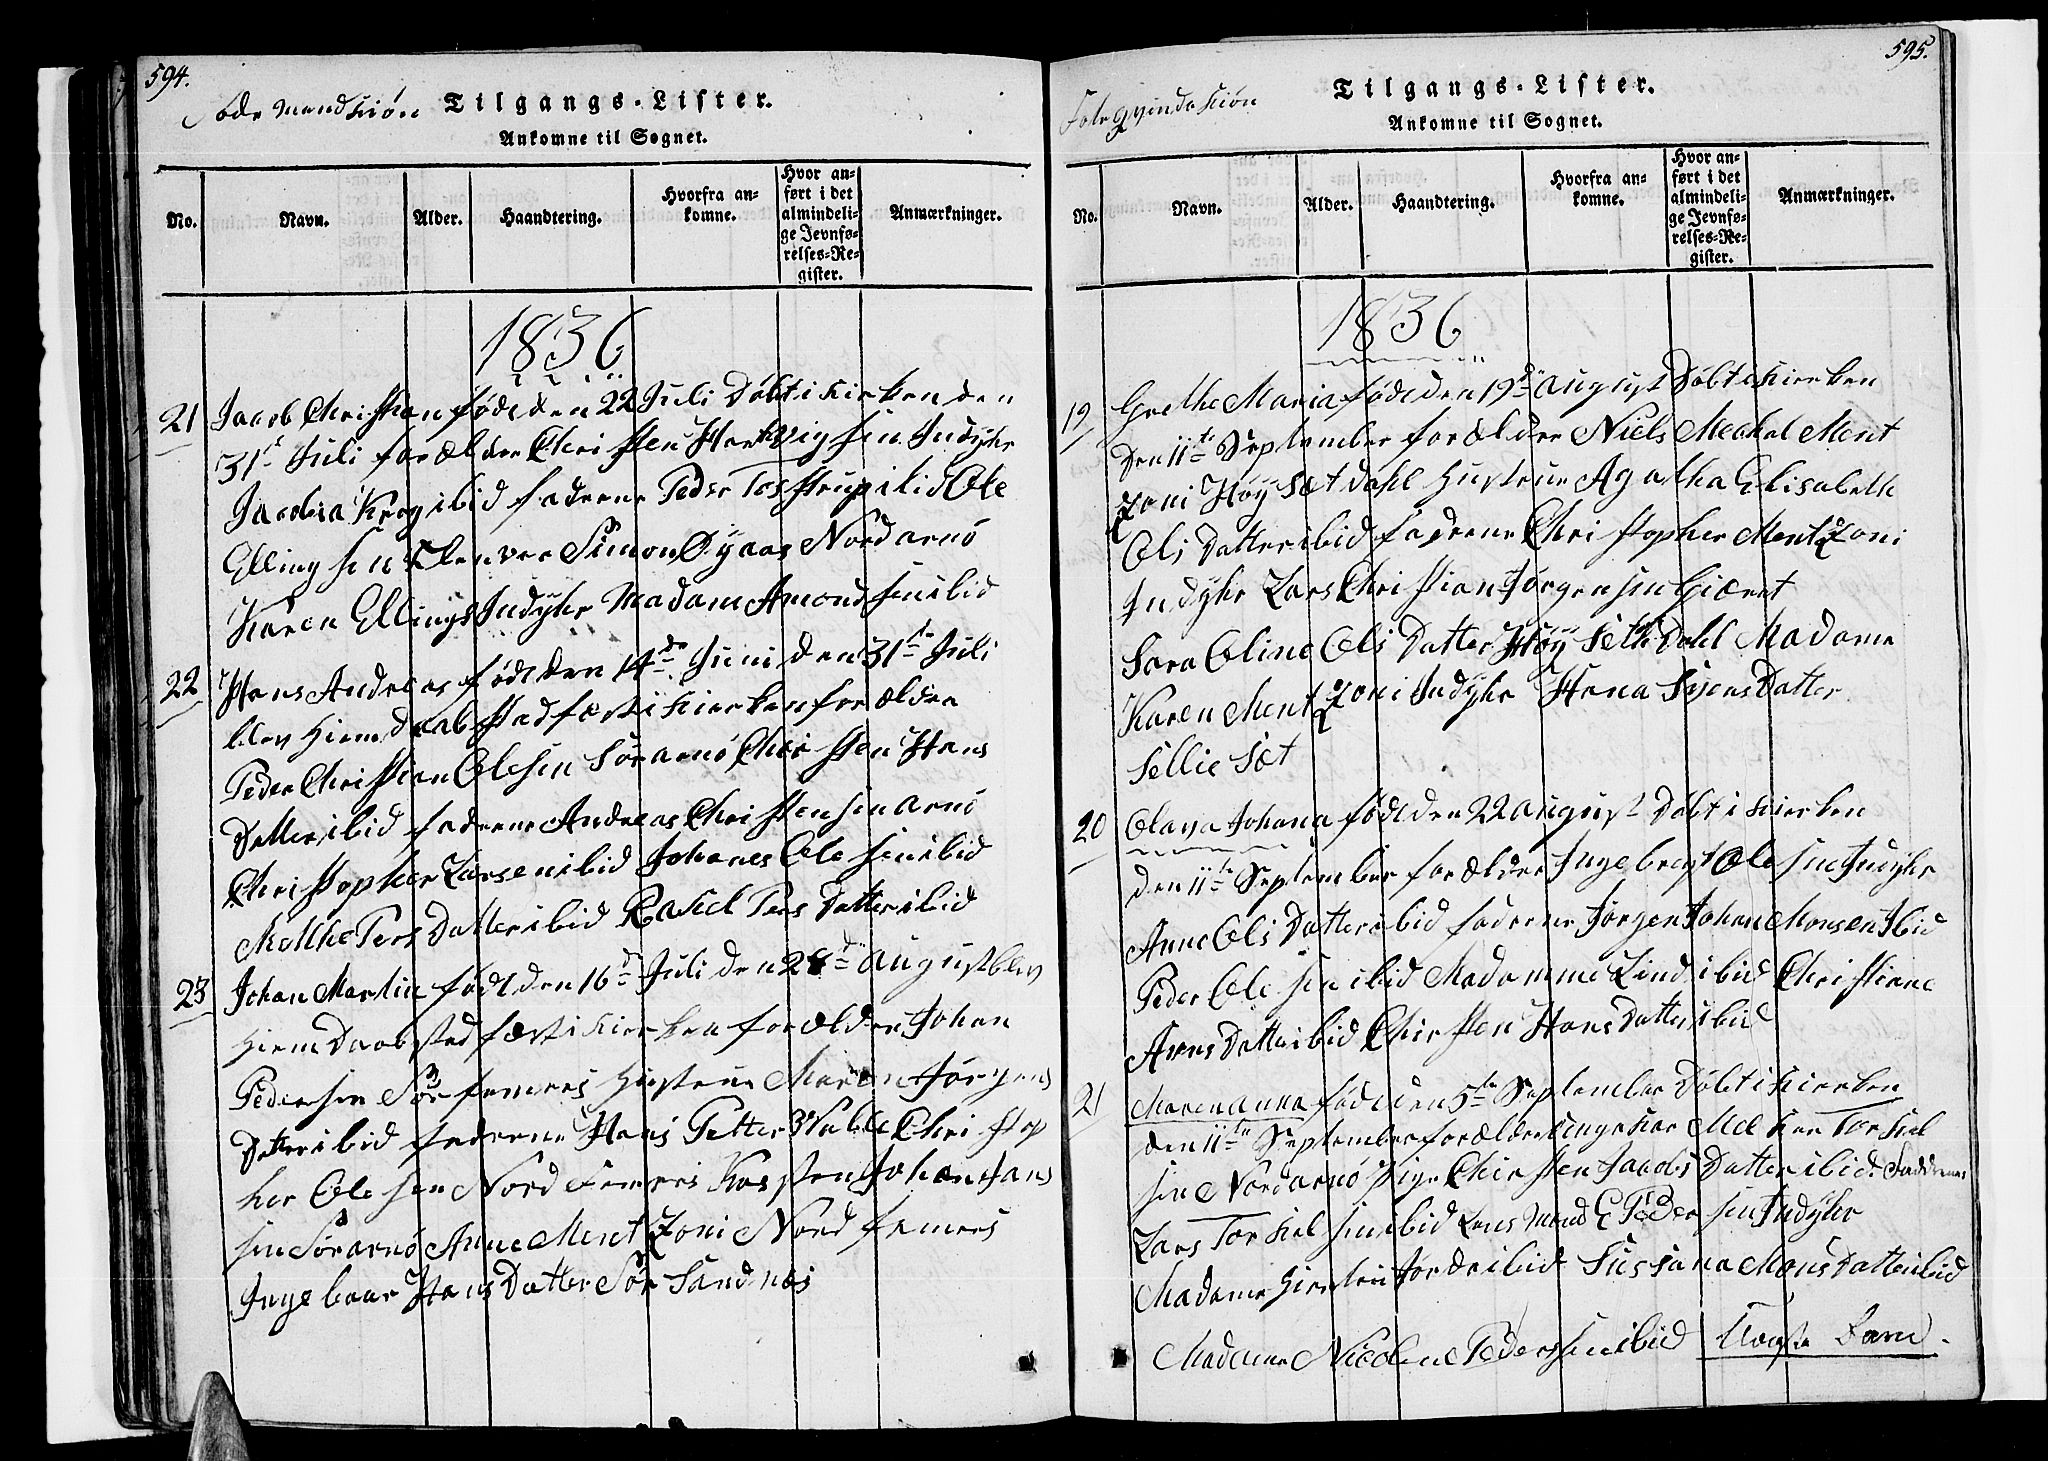 594.
Føde Mandkiøn Tilgangs-Lister.
Ankomne til Sognet.
No.
Navn.
Alder.
Haandtering.
Hvorfra an-
komne.
Hvor an-
ført i det
almindeli-
ge Jevnfø-
relses-Re-
gister.
Anmærkninger.
1836
21 Jacob Christian født den 22 Juli Døbt i Kirken den
31te Juli forældre Christen Hartvigsen Indyhr
Jacobia Krog ibid fadrene Peder Tostrup ibid Ole
Ellingsen Simon Nordarnø
Karen Ellings Indyhr Madam Amondsen ibid
22 Hans Andreas født den 14de Juni den 31te Juli
blev Hiemdaab stadfæst i Kierken forældre
Peder Christian Olesen Sørarnø Christen Hans
Datter ibid fadrene Andreas Christensen arnø
Christopher Larsen ibid Johanes Olesen ibid
Methe Pers Datter ibid Rakel Pers Datter ibid
23 Johan Martin født den 16de Juli den 28de August blev
Hiem Daab stadfæst i Kierken forældre Johan
Pedersen Sør femeres Hustrue Maren Jørgens
Datter ibid fadrene Hans Petter Christop
her Olesen Nord Femris Karsten Johan Jans
sen Sørarnø Anne Mentzoni Nord femeres
Ingebaar Hans Datter Sør Sandnæs
595.
Føde Qvindekiøn
Tilgangs-Lister.
Ankomne til Sognet.
No.
Navn.
Alder.
Haandtering.
Hvorfra an-
komne.
Hvor an-
ført i det
almindeli-
ge Jevnfø-
relses-Re-
gister.
Anmærkninger.
1836
19 Grethe Maria født den 19de August Døbt i Kierken
den 11te September forældre Niels Meakel Ment
zoni Høÿ Sæt dahl Hustrue Agatha Elisabeth
Ols Datter ibid fadrene Christopher Mentzoni
Indyhr Lars Christian Jørgensen Giæret
Sara Oline Ols Datter Høÿ Seth Dahl Madame
Karen Mentzoni Indyhr Hana Syens Datter
Sellie Sæt
20 Olava Johana født den 22 August Døbt i Kierken
den 11te September forældre Ingebregt Olesen Indyhr
Anne Ols Datter ibid fadrene Jørgen Johan Monsen Ibid
Peder Olesen ibid Madamme Lind ibid Christiane
Arns Datter ibid Chirsten Hans Datter ibid
21 Maren anna føde den 5te September Døbt i Kierken
den 11te September forældre Ungekar Melker Torkel
sen Nordarnø Pige Chirsten Jacobs Datter ibid. Faddrene
Lars Torkelsen ibid Lensmand E Pedersen Indyhr
Madame Jorde ibid Sussana Mons Datter ibid
Madame Nicoline Pedersen ibid Uægte Barn.